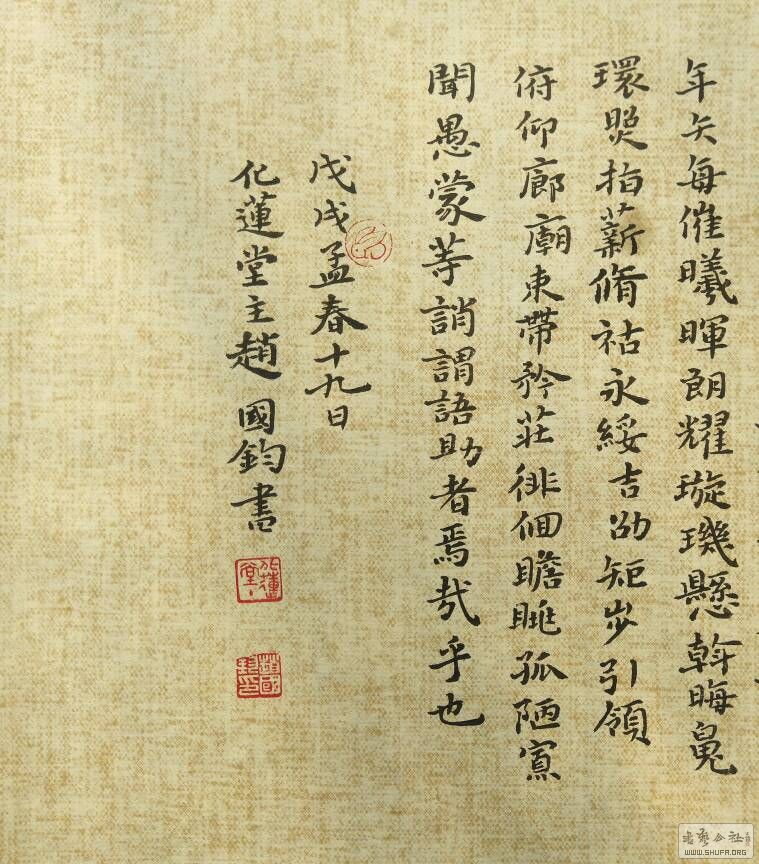 年矢每催曦暉朗耀璇璣懸斡晦魄
環照指薪脩祜永綏吉劭矩步引領
俯仰廊廟束帶矜莊徘徊瞻眺孤陋寡
聞愚蒙等誚謂語助者焉哉乎也
戊戌孟春十九日
化蓮堂主趙國鈞書
化蓮堂
趙國鈞印
WWW.SHUFA.ORG